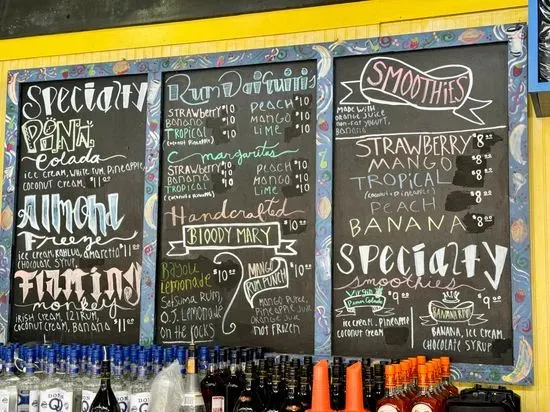 Specialty
Pina
Colada
ice cream, white rum, pineapple
coconut cream $11.00
Almond
Freeze
ice cream, kahlua, amaretto $11
chocolate syrup
Flaming
monkey
Irish cream, 121 rum,
coconut cream, Banana $11
Rum Daiquiris
Strawberry $10
Banana $10
Tropical $10
(coconut & pineapple)
Peach $10
Mango $10
Lime $10
margaritas
Strawberry $10
Banana $10
Tropical $10
Peach $10
Mango $10
Lime $10
Handcrafted
Bloody Mary $10.00
Bayou
Lemonade $10.00
Satsuma Rum,
O.J. Lemonade
on the rocks
Mango
Rum Punch $10.00
Mango puree,
Pineapple Juice
Orange Juice
Not Frozen
Smoothies
Made with
orange juice
non-fat yogurt,
Banana
Strawberry $8.00
Mango $8.00
Tropical $8.00
(coconut & pineapple)
Peach $8.00
Banana $8.00
Specialty
Smoothies
Virgin
Pina Colada $9.00
ice cream, Pineapple
coconut cream
$9.00
Banana, ice cream,
chocolate syrup